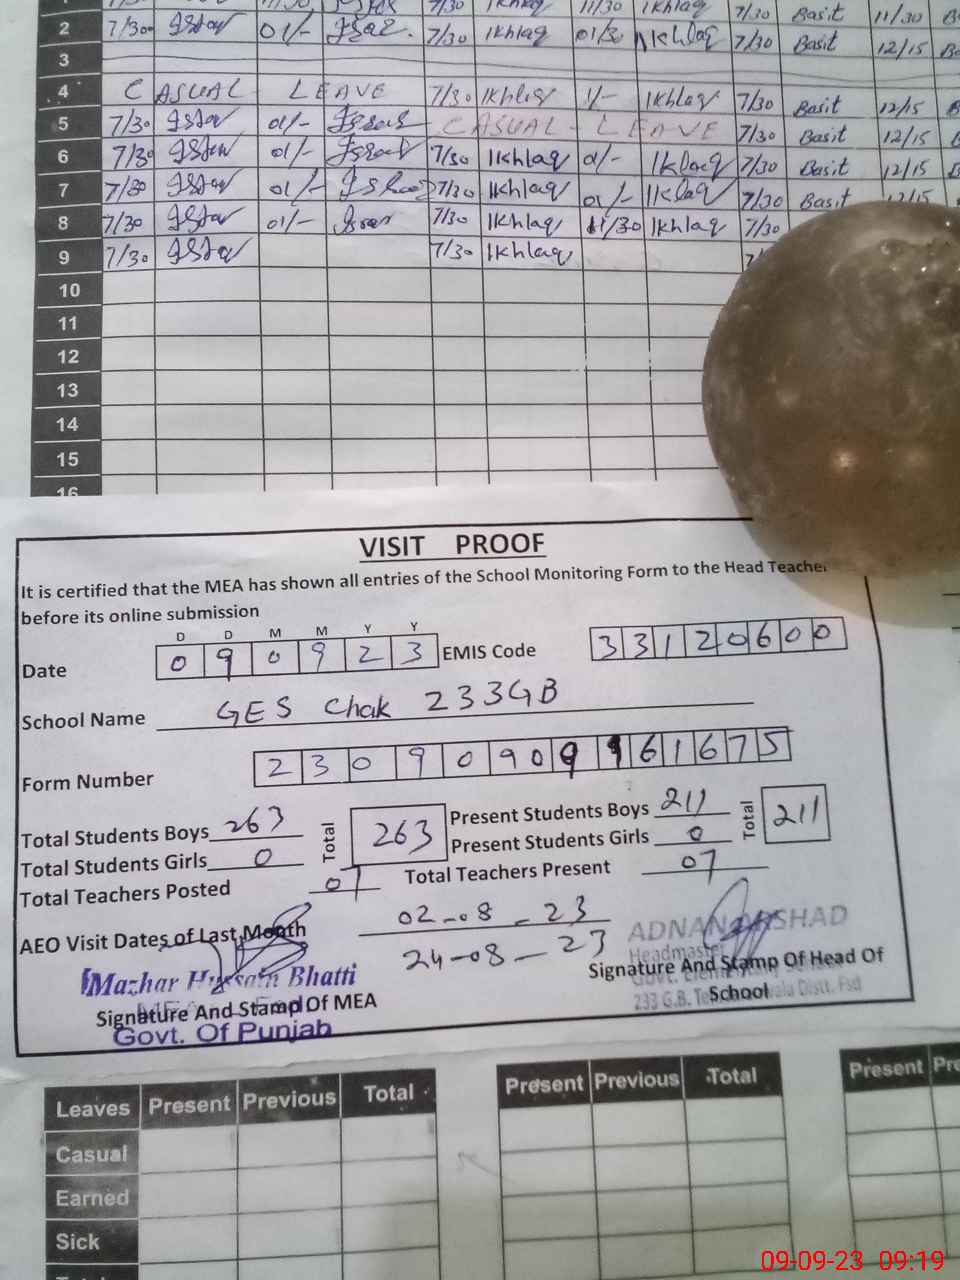 7/30 Ikhlaq 11/30 Ikhlaq 7/30 Basit 11/30
2 7/30 01/- 7/30 Ikhlaq 01/30 Ikhlaq 7/30 Basit 12/15
3
4 CASUAL LEAVE 7/30 Ikhlaq 1/- Ikhlaq 7/30 Basit 12/15
5 7/30 01/- CASUAL - LEAVE 7/30 Basit 12/15
6 7/30 01/- 7/30 Ikhlaq 01/- Iklaq 7/30 Basit 12/15
7 7/30 01/- 7/30 Ikhlaq 01/- Iklaq 7/30 Basit 12/15
8 7/30 01/- 7/30 Ikhlaq 11/30 Ikhlaq 7/30
9 7/30 7/30 Ikhlaq
10
11
12
13
14
15
16
VISIT PROOF
It is certified that the MEA has shown all entries of the School Monitoring Form to the Head Teacher
before its online submission
D D M M Y Y
Date 0 9 0 9 2 3 EMIS Code 3 3 1 2 0 6 0 0
School Name GES Chak 233GB
Form Number 2 3 0 9 0 9 0 9 9 6 1 6 7 5
Total Students Boys 263 Total 263 Present Students Boys 211 Total 211
Total Students Girls 0 Present Students Girls 0
Total Teachers Posted 07 Total Teachers Present 07
AEO Visit Dates of Last Month 02-08-23
24-08-23
ADNAN ARSHAD
Headmaster
Mazhar Hussain Bhatti
Signature And Stamp Of MEA
Govt. Of Punjab
Signature And Stamp Of Head Of
School
233 G.B. Distt. Fsd
Leaves Present Previous Total Present Previous Total Present
Casual
Earned
Sick
09-09-23 09:19